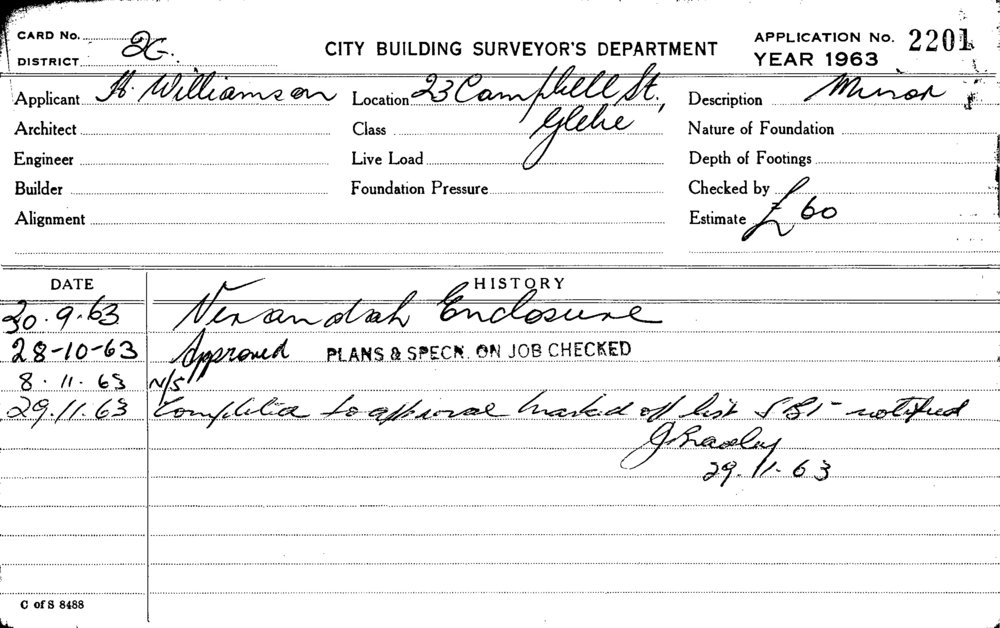 CARD No.
DISTRICT 2G.
CITY BUILDING SURVEYOR'S DEPARTMENT
APPLICATION No. 2201
YEAR 1963
Applicant H. Williamson
Location 23 Campbell St.,
Glebe
Description Minor
Architect
Class
Nature of Foundation
Engineer
Live Load
Depth of Footings
Builder
Foundation Pressure
Checked by
Alignment
Estimate £60
DATE HISTORY
30.9.63 Verandah Enclosure
28-10-63 Approved PLANS & SPECN. ON JOB CHECKED
8.11.63 N/S
29.11.63 Completed to approval marked off list notified
29.11.63
C of S 8488